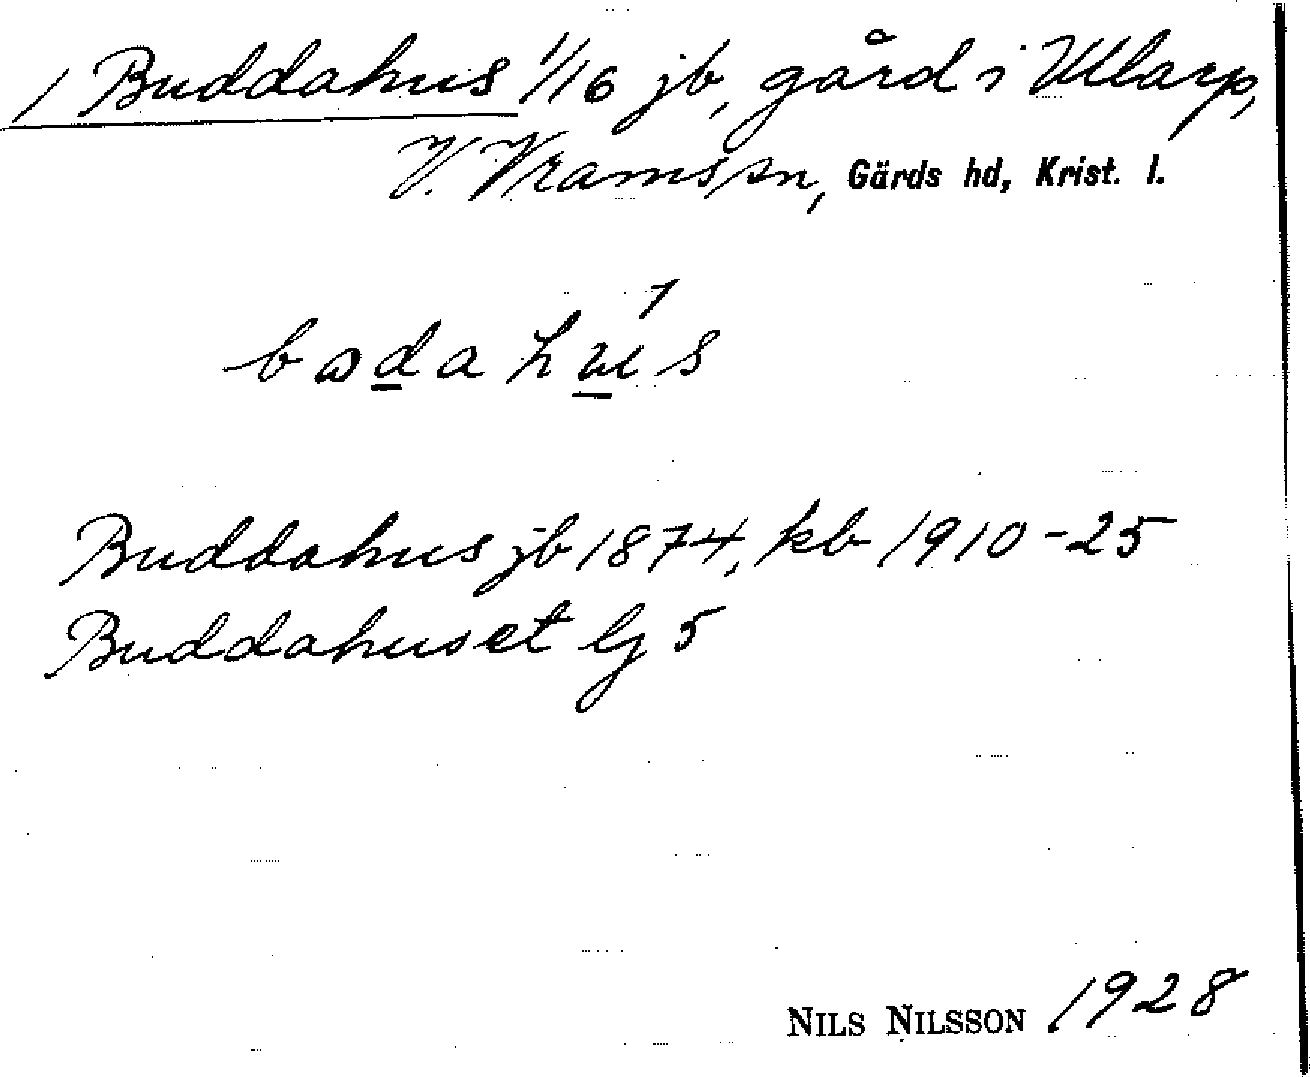 1 Buddahus 1/16 jb, gård i Ullarp,
V. Vrams sn, Gärds hd, Krist. l.
Buddahus jb 1874, kb 1910-25
Buddahuset lj 5
NILS NILSSON 1928